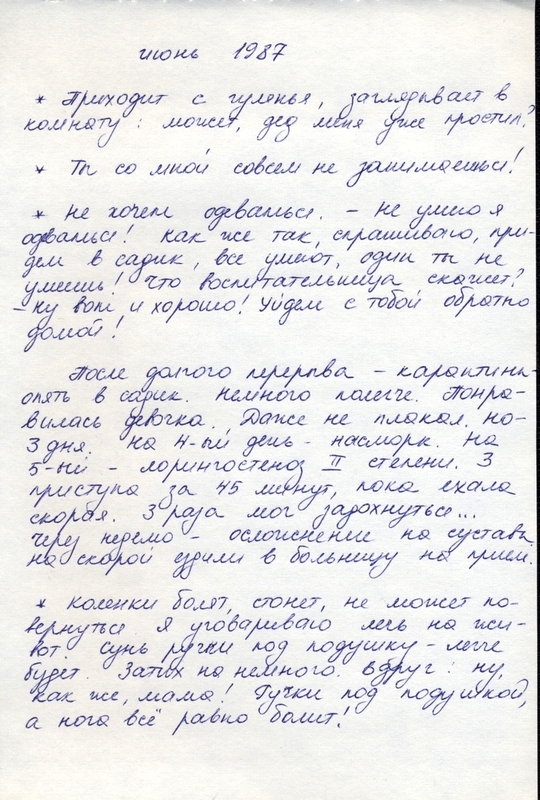 июнь 1987
* Приходит с гулянья, заглядывает в
комнату: может, дед меня уже простил?
* Ты со мной совсем не занимаешься!
* не хочет одеваться. – не умею я
одеваться! Как же так, спрашиваю, при-
дем в садик, все умеют, один ты не
умеешь! Что воспитательница скажет?
– ну вот и хорошо! Уйдем с тобой обратно
домой!
После долгого перерыва – карантины –
опять в садик. Немного полегче. Понра-
вилась девочка. Даже не плакал. но –
3 дня. на 4-ый день – насморк. На
5-ый – лорингостеноз II степени. 3
приступа за 45 минут, пока ехала
скорая. 3 раза мог задохнуться...
Через неделю – осложнение на суставы.
на скорой ездили в больницу на прием.
* Коленки болят, стонет, не может по-
вернуться я уговариваю лечь на жи-
вот. сунь ручки под подушку – легче
будет. Затих на немного. Вдруг: ну,
как же, мама! Ручки под подушкой,
а нога всё равно болит!